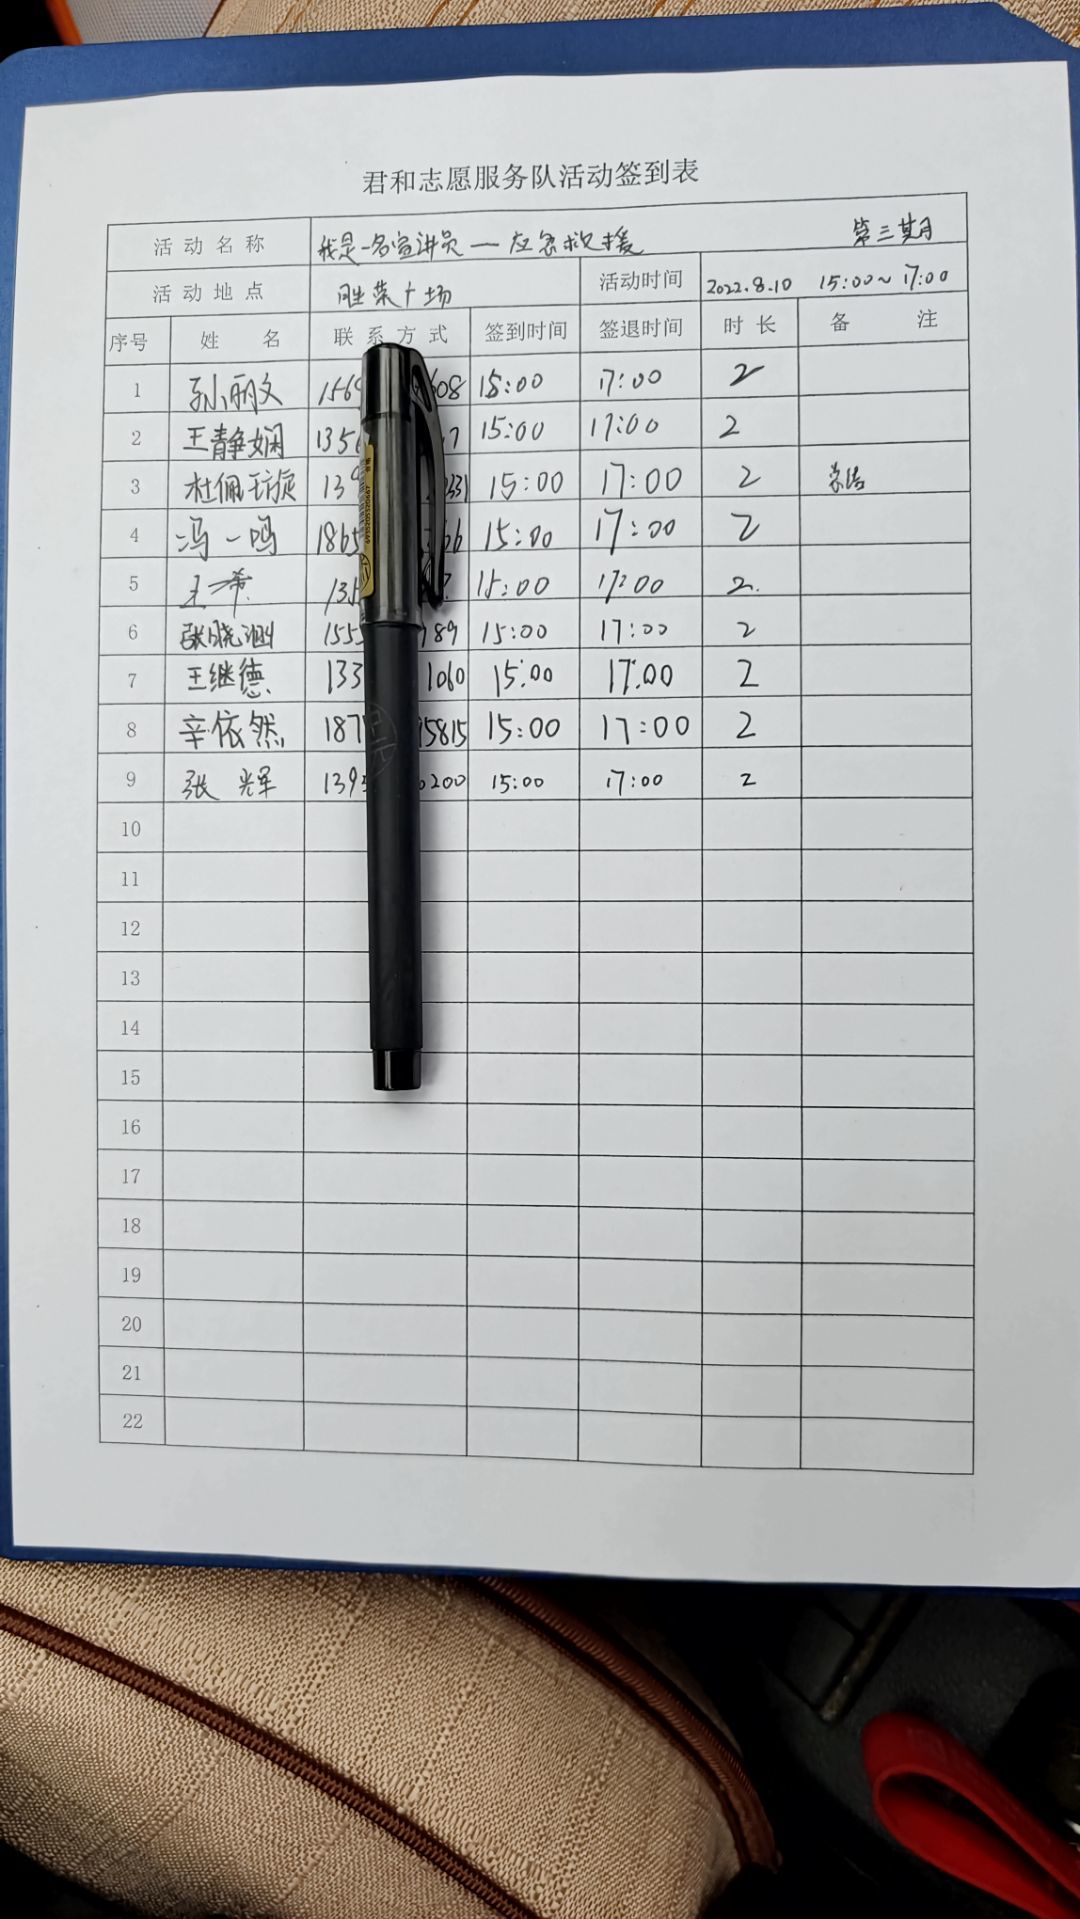 君和志愿服务队活动签到表
活动名称 我是一名宣讲员—应急救援 第三期
活动地点 胜菜广场 活动时间 2022.8.10 15:00~17:00
序号 姓名 联系方式 签到时间 签退时间 时长 备注
1 孙丽文 156 608 15:00 17:00 2
2 王静娴 135 7 15:00 17:00 2
3 杜佩 13 331 15:00 17:00 2
4 冯一鸣 1865 66 15:00 17:00 2
5 王希 135 15:00 17:00 2.
6 张晓 155 789 15:00 17:00 2
7 王继德 133 1060 15:00 17:00 2
8 辛依然 187 5815 15:00 17:00 2
9 张辉 139 0200 15:00 17:00 2
10
11
12
13
14
15
16
17
18
19
20
21
22
6935205320667